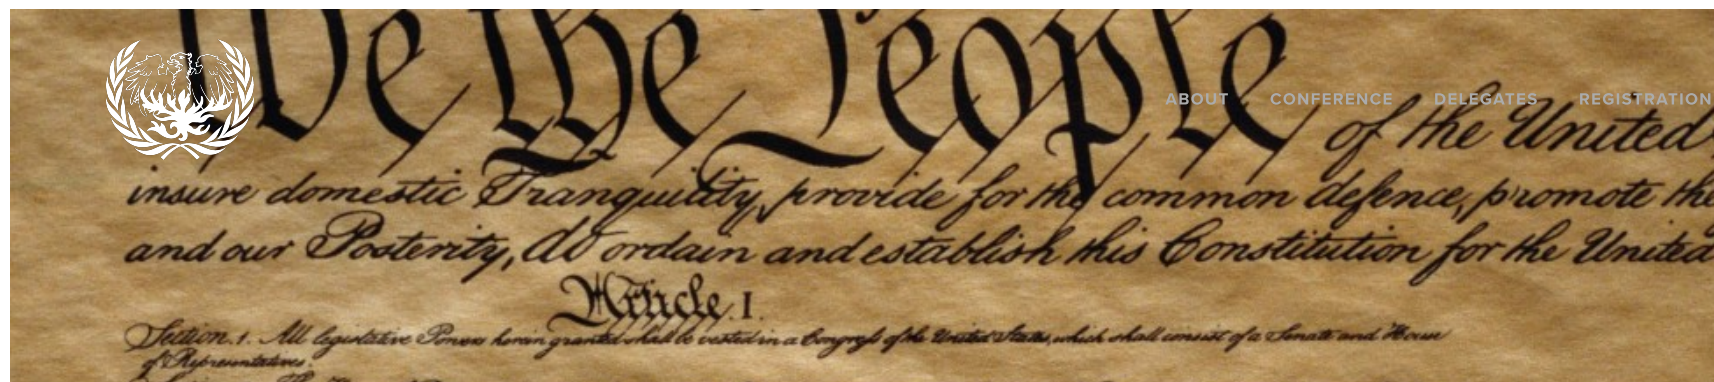 We the People of the United
ABOUT CONFERENCE DELEGATES REGISTRATION
insure domestic Tranquility, provide for the common defence, promote the
and our Posterity, do ordain and establish this Constitution for the United
Article. I.
Section. 1. All legislative Powers herein granted shall be vested in a Congress of the United States, which shall consist of a Senate and House
of Representatives.